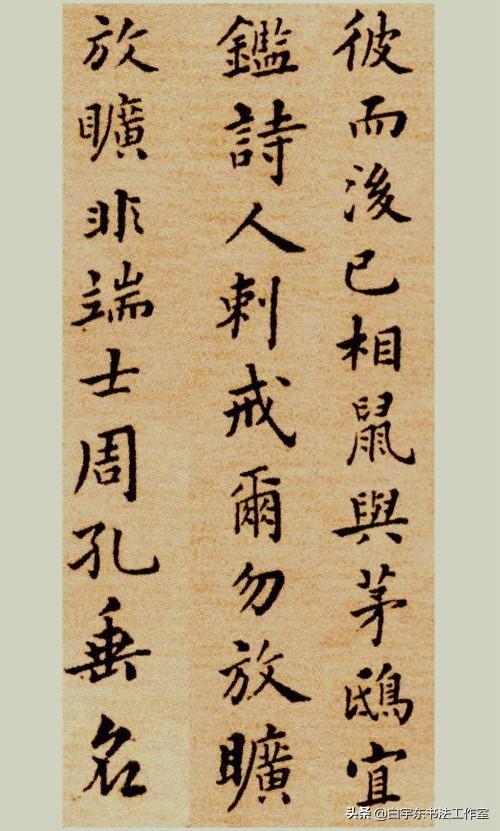 彼而後已相鼠與茅鴟宜
鑑詩人刺戒爾勿放曠
放曠非端士周孔垂名
头条 @白宇东书法工作室